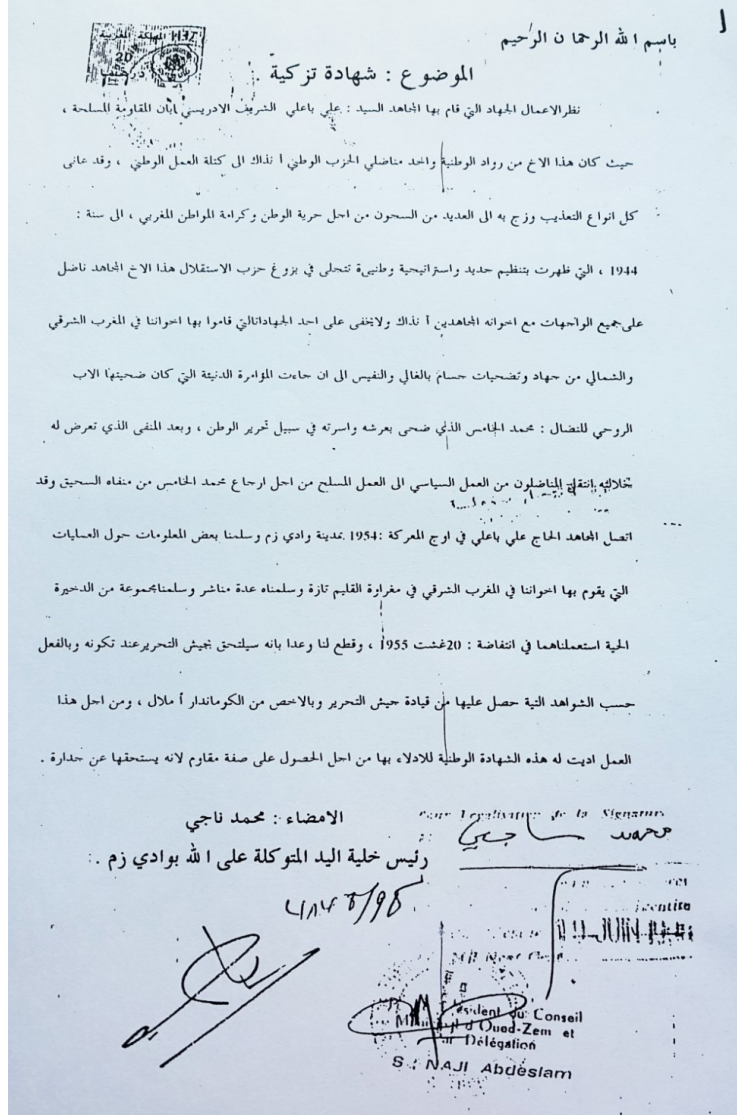 باسم الله الرحمان الرحيم
المملكة المغربية
20
الموضوع : شهادة تزكية .
نظر الاعمال الجهاد التي قام بها المجاهد السيد : علي باعلي الشريف الادريسي ابان المقاومة المسلحة ،
حيث كان هذا الاخ من رواد الوطنية واحد مناضلي الحزب الوطني أ نذاك الى كتلة العمل الوطني ، وقد عانى
كل انواع التعذيب وزج به الى العديد من السحون من احل حرية الوطن وكرامة المواطن المغربي ، الى سنة :
1944 ، التي ظهرت بتنظيم حديد واستراتيحية وطنيىة تتحلى في بزوغ حزب الاستقلال هذا الاخ المجاهد ناضل
على جميع الواحهات مع اخوانه المجاهدين أ نذاك ولايخفى على احد الجهاداتالتي قاموا بها اخواننا في المغرب الشرقي
والشمالي من حهاد وتضحيات حسام بالغالي والنفيس الى ان حاءت المؤامرة الدنيئة التي كان ضحيتها الاب
الروحي للنضال : محمد الخامس الذي ضحى بعرشه واسرته في سبيل تحرير الوطن ، وبعد المنفى الذي تعرض له
خلاله انتقل المناضلون من العمل السياسي الى العمل المسلح من احل ارحاع محمد الخامس من منفاه السحيق وقد
اتصل المجاهد الحاج علي باعلي في اوج المعركة :1954 بمدينة وادي زم وسلمنا بعض المعلومات حول العمليات
التي يقوم بها اخواننا في المغرب الشرقي في مغراوة القليم تازة وسلمناه عدة مناشر وسلمنابجموعة من الذخيرة
الحية استعملناهما في انتفاضة : 20غشت 1955 ، وقطع لنا وعدا بانه سيلتحق بجيش التحريرعند تكونه وبالفعل
حسب الشواهد التية حصل عليها من قيادة حيش التحرير وبالاخص من الكوماندار أ ملال ، ومن احل هذا
العمل اديت له هذه الشهادة الوطنية للادلاء بها من احل الحصول على صفة مقاوم لانه يستحقها عن حدارة .
الامضاء : محمد ناجي
رئيس خلية اليد المتوكلة على الله بوادي زم .
Pour Legalisation de la Signature
محمد ناجي
President du Conseil
d'Oued-Zem et
Délégation
S : NAJI Abdeslam